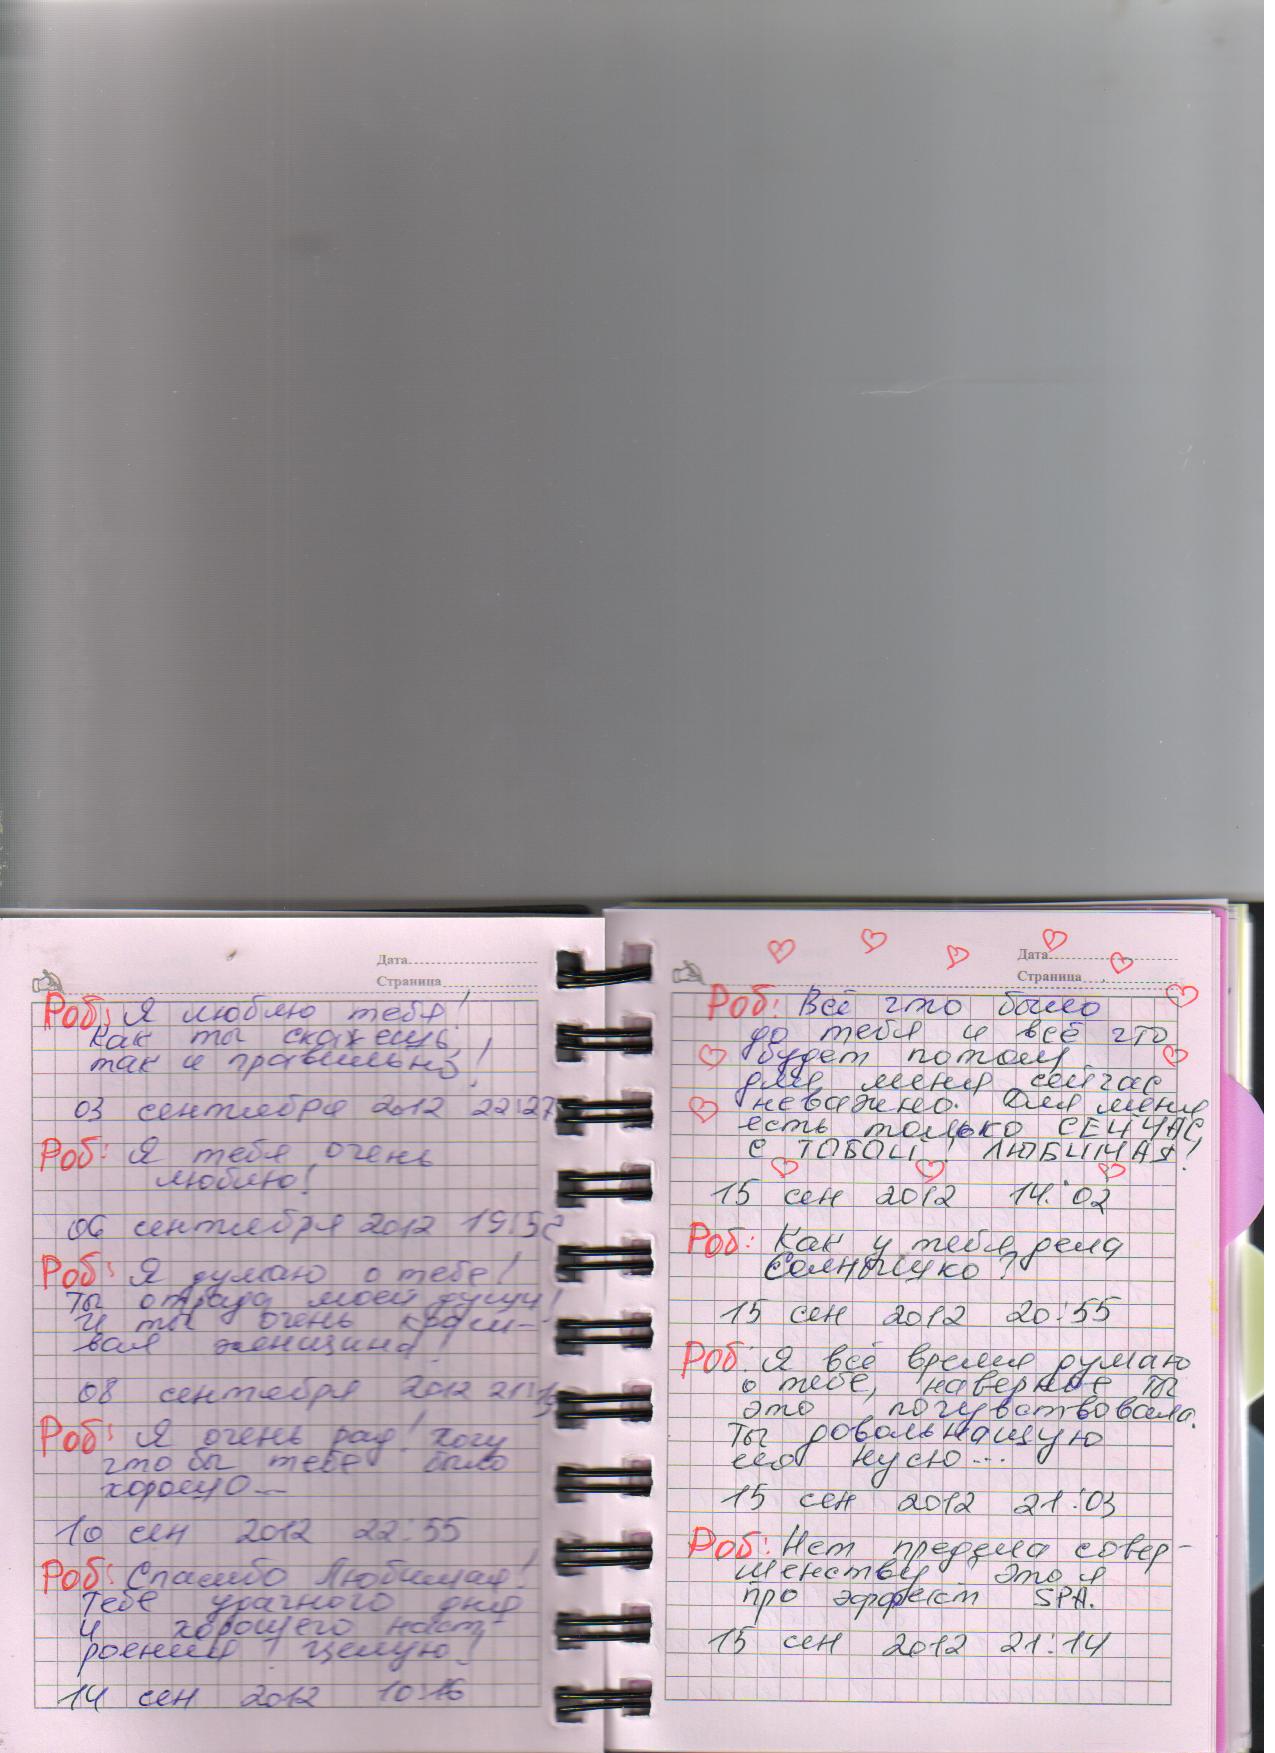 Дата
Страница
Роб: Я люблю тебя!
Как ты скажешь
так и правильно!
03 сентября 2012 22:27
Роб: Я тебя очень
люблю!
06 сентября 2012 19:52
Роб: Я думаю о тебе!
Ты отрада моей души!
И ты очень краси-
вая женщина!
08 сентября 2012 21:
Роб: Я очень рад! хочу
чтобы тебе было
хорошо...
10 сен 2012 22:55
Роб: Спасибо Любимая!
Тебе удачного дня
и хорошего наст-
роения! Целую.
14 сен 2012 10:16
Дата
Страница
Роб: Всё что было
до тебя и всё что
будет потом
для меня сейчас
неважно. Для меня
есть только СЕЙЧАС,
С ТОБОЙ, ЛЮБИМАЯ!
15 сен 2012 14:02
Роб: Как у тебя дела
Солнышко?
15 сен 2012 20:55
Роб: Я всё время думаю
о тебе, наверное ты
это почувствовала.
Ты довольнащую
15 сен 2012 21:03
Роб: Нет предела совер-
шенству, это я
про эффект SPA.
15 сен 2012 21:14